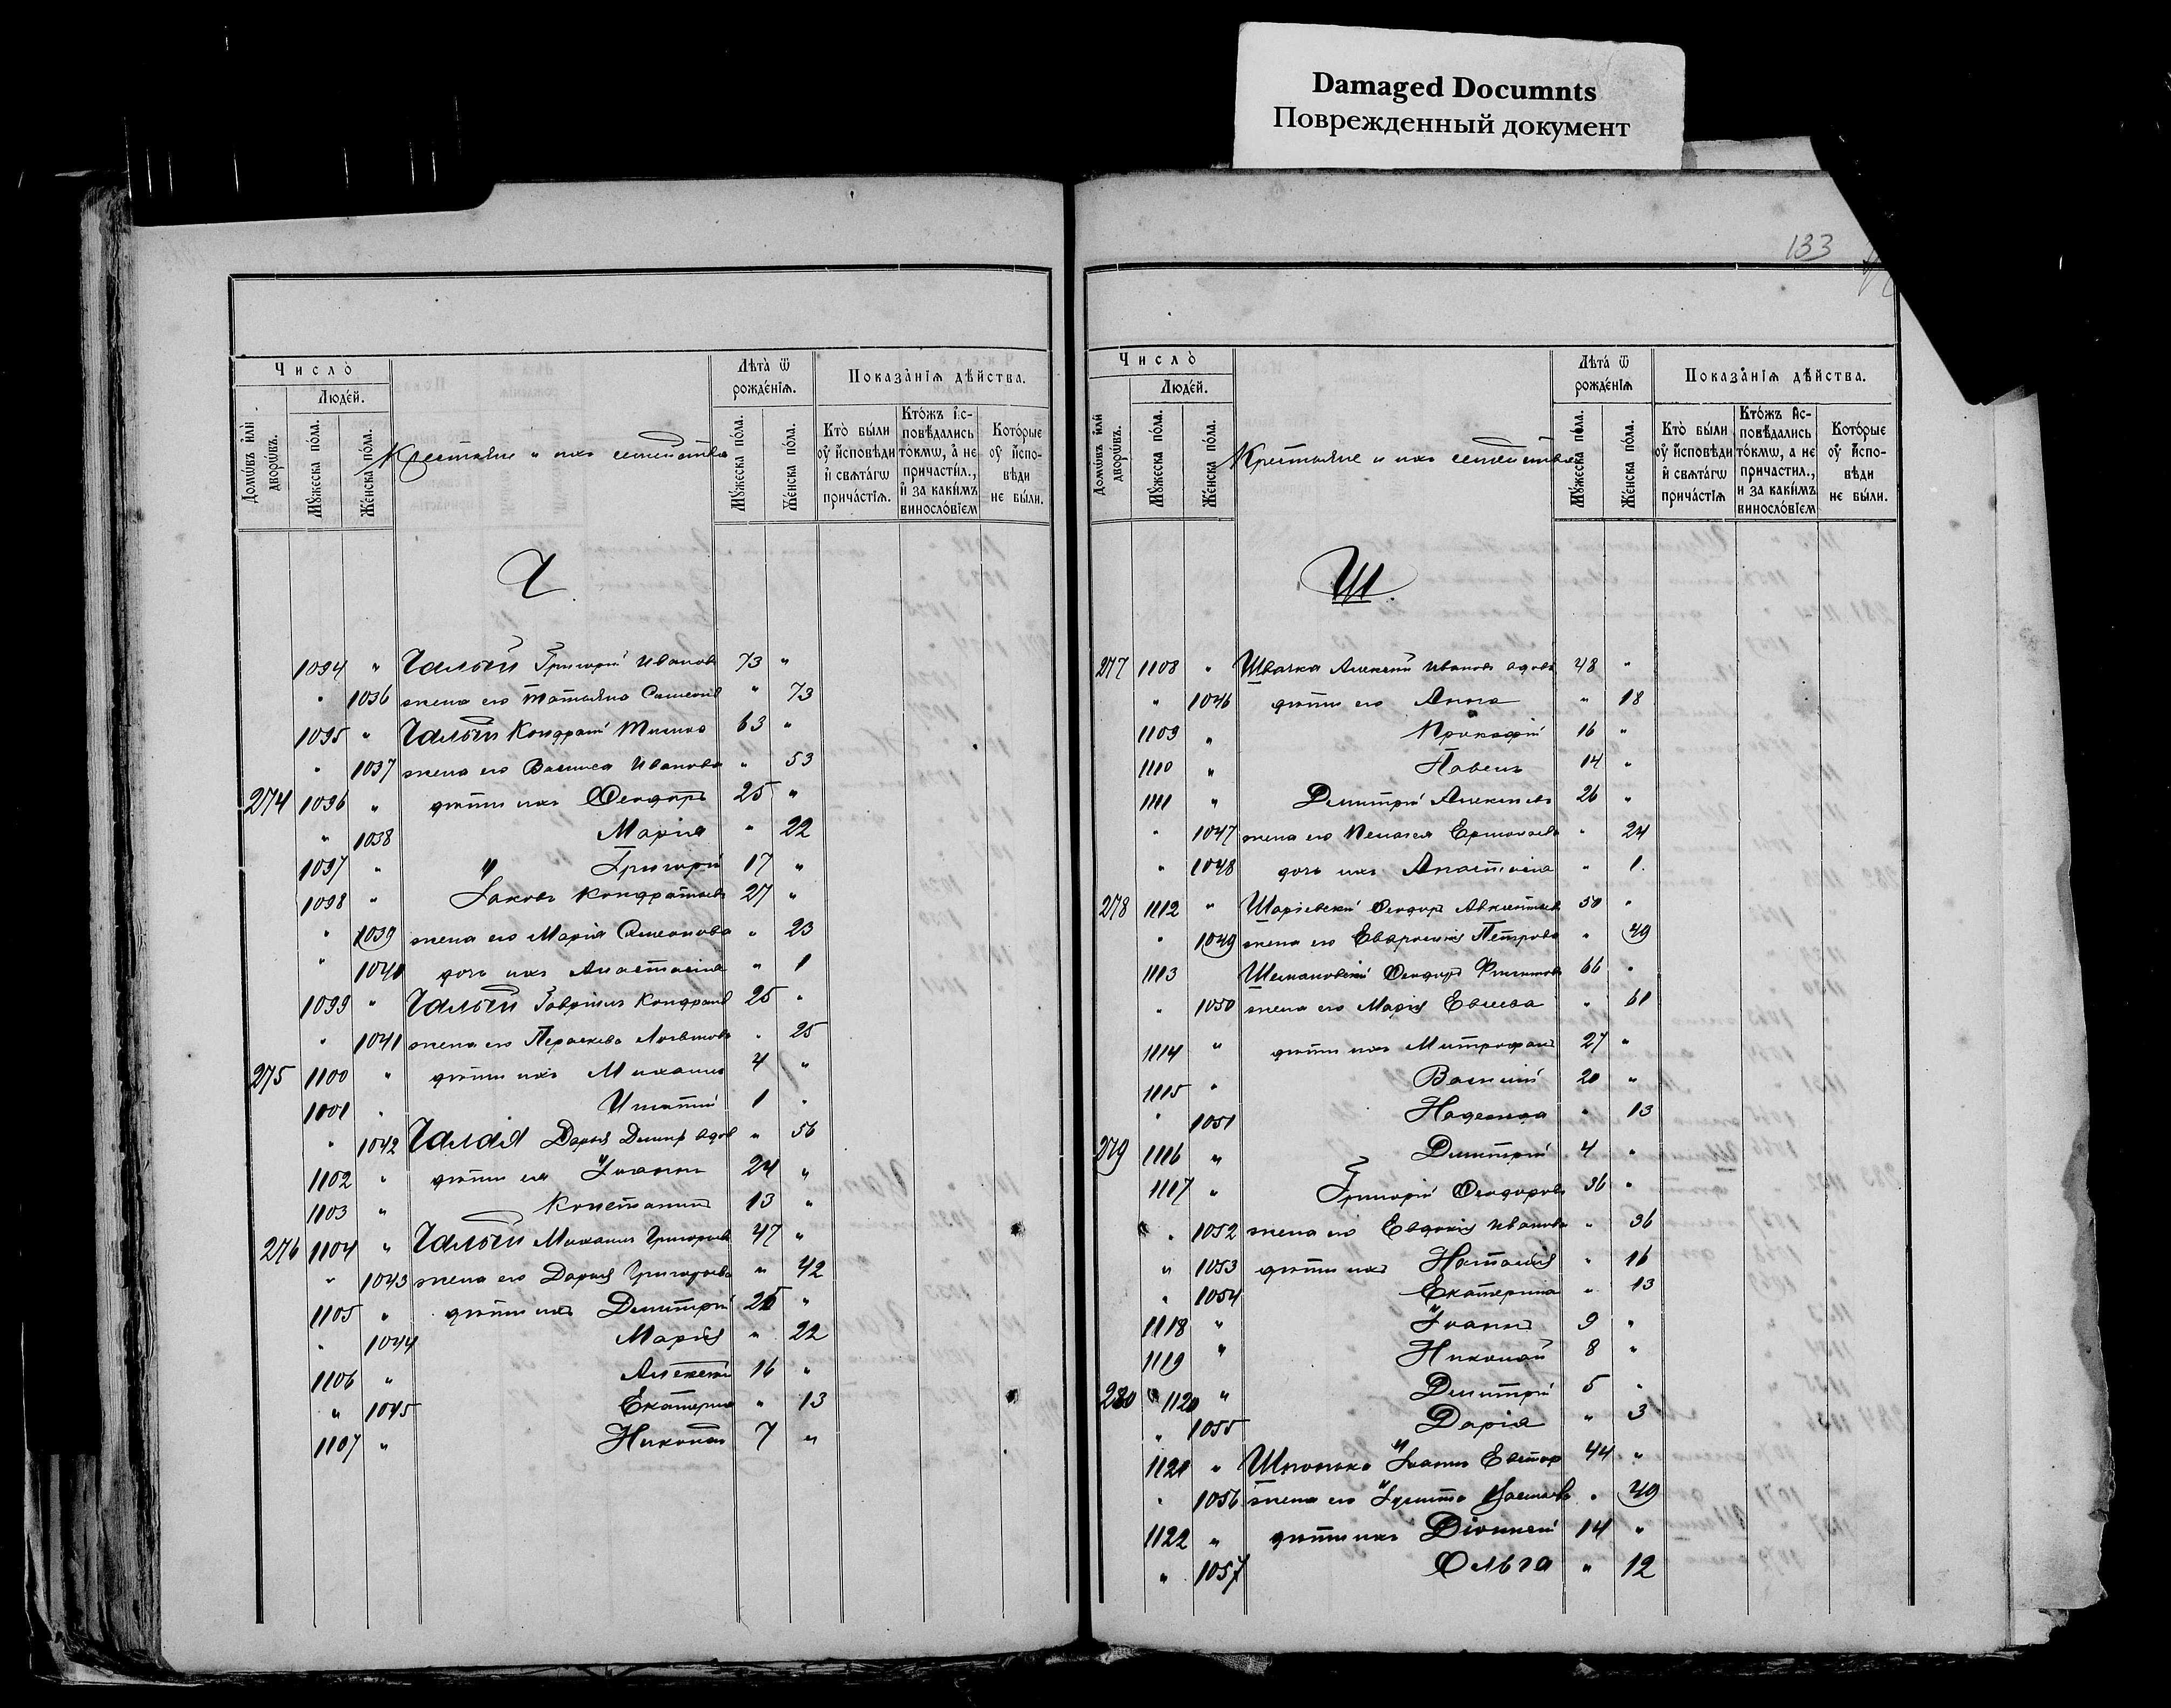 Damaged Documnts
Поврежденный документ
133
Число̀
Людéй.
Домѡ́въ и҆лѝ дворѡ́въ.
Мꙋ́жеска по́ла.
Же́нска по́ла.
Крестьяне и ихъ семейства
Лѣта̀ ѿ рожде́нїѧ.
Мꙋ́жеска по́ла.
Же́нска по́ла.
Показа̑нїѧ дѣ́йства.
Кто̀ бы́ли ᲂу҆ и҆сповѣди и҆ свѧта́гѡ прича́стїѧ.
Кто́жъ і҆споъ҆дались то́кмѡ, а҆ не причасти́л., и҆ за каки́мъ виносло́вїем
Кото́рые ᲂу҆ и҆сповѣди не бы́ли.
Ч
1094 " Чалый Григорій Иванов 73 "
" 1036 жена его Татьяна Симеонв " 73
1095 " Чалый Кондрат 63 "
" 1037 жена его Василиса Иванова " 53
274 1096 " дѣти ихъ Ѳеодоръ 25 "
" 1038 Марія " 22
1097 " Григорій 17 "
1098 " Іаковъ Кондратьев 27 "
" 1039 жена его Марія Симеонова " 23
" 1040 дочь ихъ Анастасія " 1
1099 " Чалый Гавріилъ Кондрат 25 "
" 1041 жена его Параскева " 25
275 1100 " дѣти ихъ Михаилъ 4 "
1001 " Игнатій 1 "
" 1042 Чалая Дарья Димит вдов " 56
1102 " дѣти ея Іоаннъ 24 "
1103 " Константинъ 13 "
276 1104 " Чалый Михаилъ Григорьев 47 "
" 1043 жена его Дарья Григорьева " 42
1105 " дѣти ихъ Димитрій 25 "
" 1044 Марія " 22
1106 " Алексѣй 16 "
" 1045 Екатерина " 13
1107 " Николай 7 "
Число̀
Людéй.
Домѡ́въ и҆лѝ дворѡ́въ.
Мꙋ́жеска по́ла.
Же́нска по́ла.
Крестьяне и ихъ семейства
Лѣта̀ ѿ рожде́нїѧ
Мꙋ́жеска по́ла.
Же́нска по́ла.
Показа̑нїѧ дѣ́йства.
Кто̀ бы́ли ᲂу҆ и҆сповѣди и҆ свѧта́гѡ прича́стїѧ
Кто́жъ и҆сповѣ́дались то́кмѡ, а не причастил., и за каки́мъ виносло́вїем
Кото́рые ᲂу҆ и҆сповѣди не бы́ли.
Ш
277 1108 " Швачка Алексѣй Иванов вдов 48 "
" 1046 дѣти его Анна " 18
1109 " Прокофій 16 "
1110 " Павелъ 14 "
1111 " Димитрій Алексѣев 26 "
" 1047 жена его Пелагея Ермолаева " 24
" 1048 дочь ихъ Анастасія " 1.
278 1112 " Ѳеодоръ 50 "
" 1049 жена его Евфросинія Петрова " 49
1113 Шемановскій Ѳеодоръ Филиппов 66 "
" 1050 жена его Марія " 61
1114 " дѣти ихъ Митрофанъ 27 "
1115 " Василій 20 "
" 1051 Надежда " 13
279 1116 " Димитрій 4 "
1117 " Григорій Ѳеодоров 36 "
" 1052 жена его Евдокія Иванова " 36
" 1053 дѣти ихъ Наталія " 16
" 1054 Екатерина " 13
1118 " Іоаннъ 9 "
1119 " Николай 8 "
280 1120 " Димитрій 5 "
" 1055 Дарія " 3
1121 " Іоаннъ 44 "
" 1056 жена его Іулитта " 49
1122 " дѣти ихъ Діонисій 14 "
" 1057 Ольга " 12